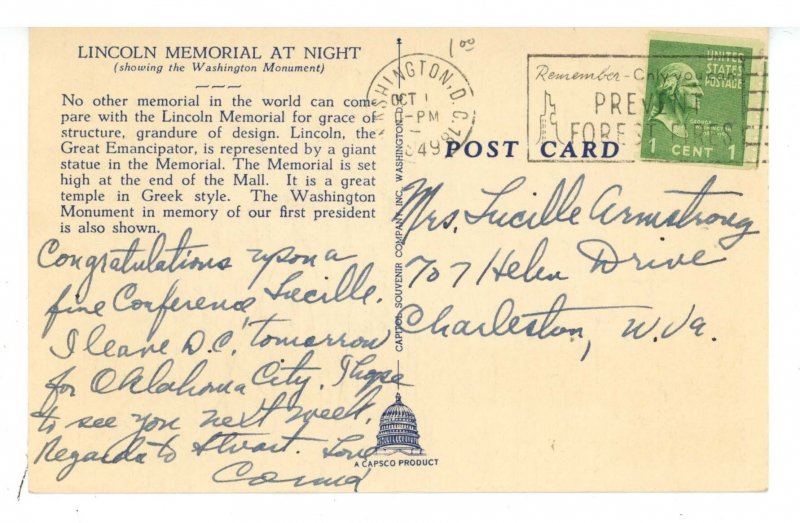 LINCOLN MEMORIAL AT NIGHT
(showing the Washington Monument)
No other memorial in the world can com-
pare with the Lincoln Memorial for grace of
structure, grandure of design. Lincoln, the
Great Emancipator, is represented by a giant
statue in the Memorial. The Memorial is set
high at the end of the Mall. It is a great
temple in Greek style. The Washington
Monument in memory of our first president
is also shown.
Congratulations upon a
fine Conference Lucille.
I leave D.C. tomorrow
for Oklahoma City. I hope
to see you next week.
Regards to Stuart. Love
A CAPSCO PRODUCT
CAPITOL SOUVENIR COMPANY INC. WASHINGTON D.
1 00
WASHINGTON, D.C.
OCT 1
PM
1949
Remember - Only you can
PREVENT
FOREST FIRES
UNITED
STATES
POSTAGE
1 CENT 1
POST CARD
Mrs. Lucille Armstrong
707 Helen Drive
Charleston, W. Va.